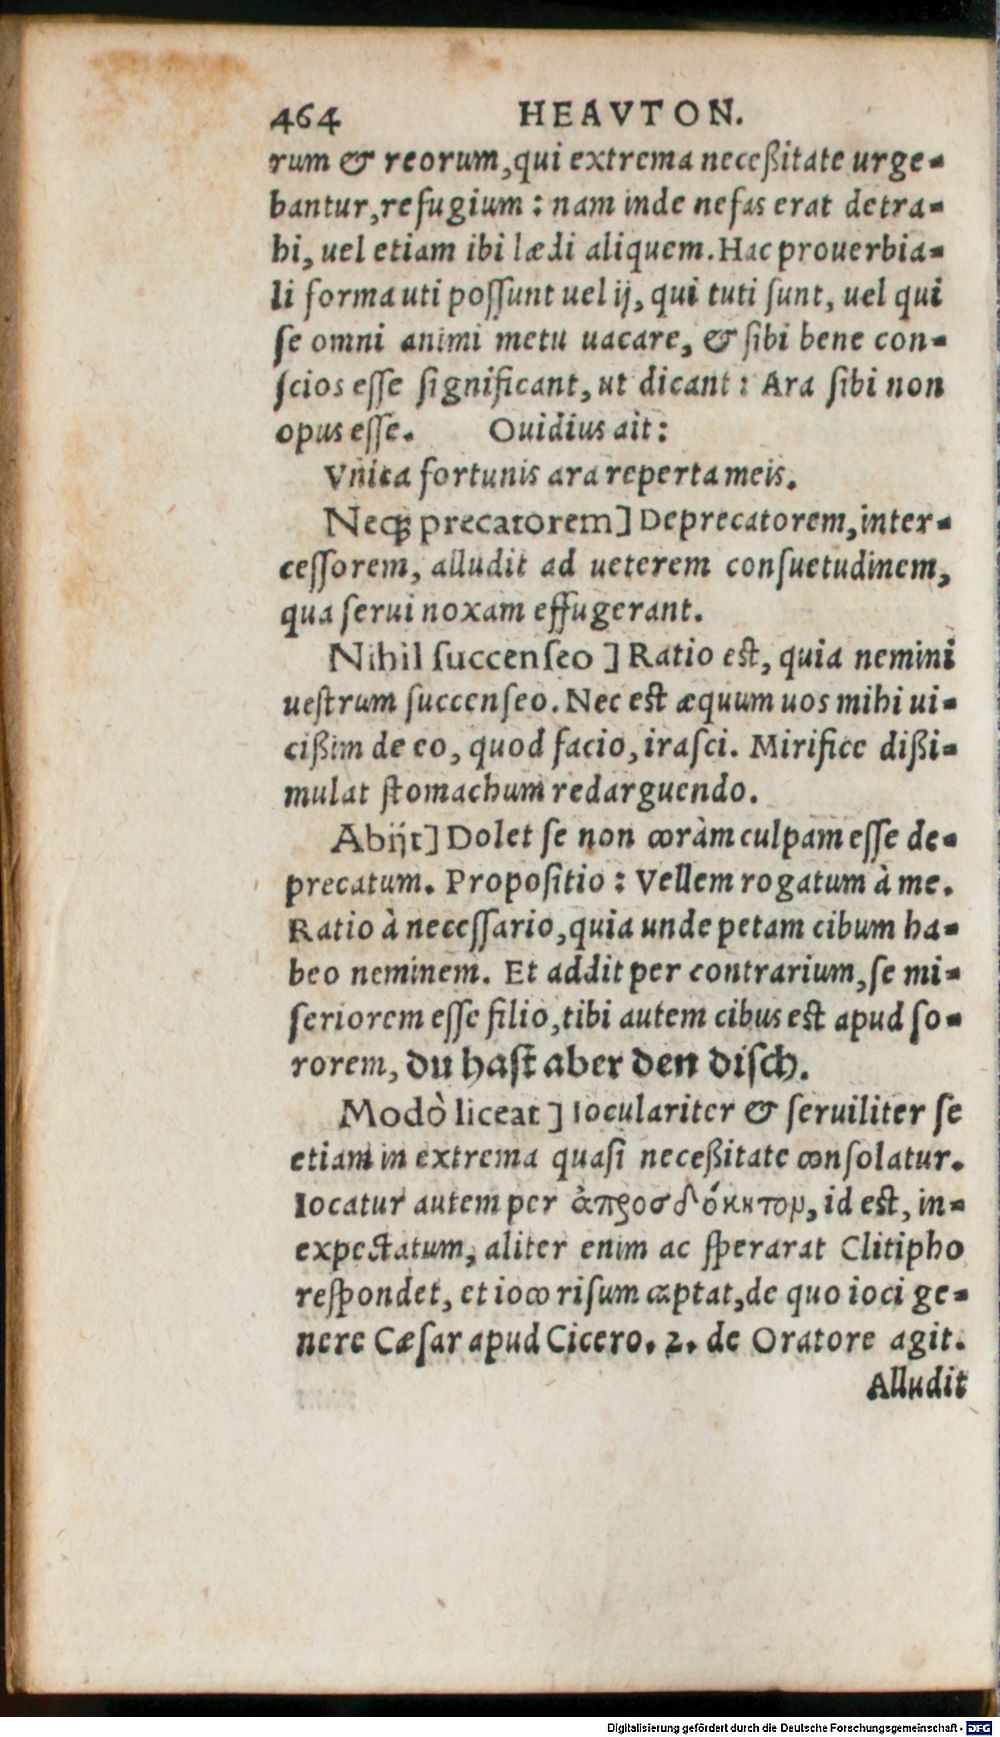 464 HEAVTON.
rum & reorum, qui extrema neceßitate urge-
bantur, refugium : nam inde nefas erat detra-
hi, uel etiam ibi lædi aliquem. Hac prouerbia-
li forma uti poſſunt uel ij, qui tuti ſunt, uel qui
ſe omni animi metu uacare, & ſibi bene con-
ſcios eſſe ſignificant, ut dicant : Ara ſibi non
opus eſſe. Ouidius ait :
Vnica fortunis ara reperta meis.
Neq; precatorem] Deprecatorem, inter-
ceſſorem, alludit ad ueterem conſuetudinem,
qua ſerui noxam effugerant.
Nihil ſuccenſeo ] Ratio eſt, quia nemini
ueſtrum ſuccenſeo. Nec eſt æquum uos mihi ui-
cißim de eo, quod facio, iraſci. Mirifice dißi-
mulat ſtomachum redarguendo.
Abijt] Dolet ſe non coràm culpam eſſe de-
precatum. Propoſitio : Vellem rogatum à me.
Ratio à neceſſario, quia unde petam cibum ha-
beo neminem. Et addit per contrarium, ſe mi-
ſeriorem eſſe filio, tibi autem cibus eſt apud ſo-
rorem, du haſt aber den diſch.
Modò liceat ] Iocula­riter & ſeruiliter ſe
etiam in extrema quaſi neceßitate conſolatur.
Iocatur autem per ἀπροσδόκητον, id eſt, in-
expectatum, aliter enim ac ſperarat Clitipho
reſpondet, et ioco riſum captat, de quo ioci ge-
nere Cæſar apud Cicero. 2. de Oratore agit.
Alludit
Digitalisierung gefördert durch die Deutsche Forschungsgemeinschaft - DFG